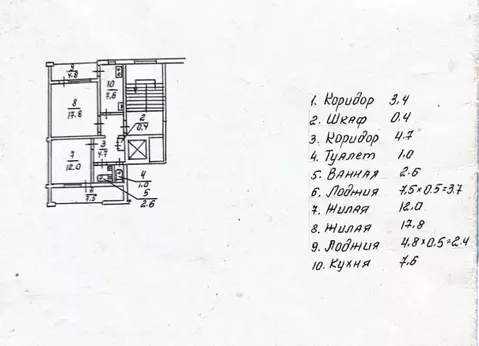 9
4.8
10
7.6
8
17.8
2
0.4
7
12.0
3
4.7
4
1.0
5
2.6
6
7.5
1. Коридор 3.4
2. Шкаф 0.4
3. Коридор 4.7
4. Туалет 1.0
5. Ванная 2.6
6. Лоджия 7.5×0.5=3.7
7. Жилая 12.0
8. Жилая 17.8
9. Лоджия 4.8×0.5=2.4
10. Кухня 7.6